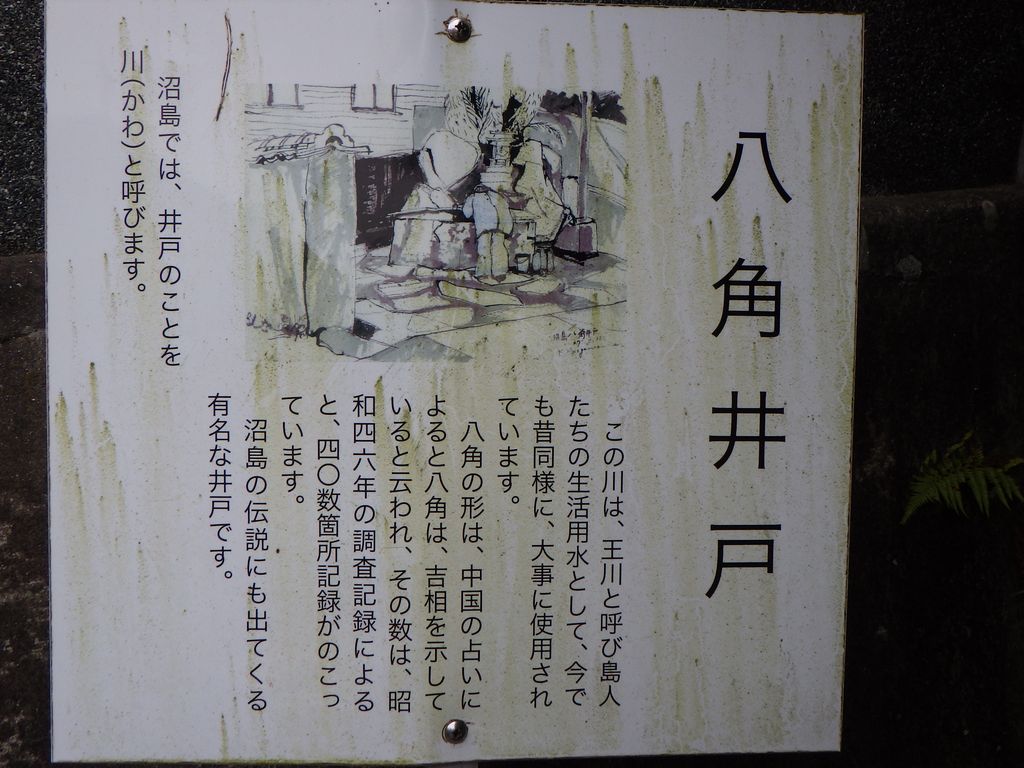 八角井戸
この川は、王川と呼び島人
たちの生活用水として、今で
も昔同様に、大事に使用され
ています。
八角の形は、中国の占いに
よると八角は、吉相を示して
いると云われ、その数は、昭
和四六年の調査記録による
と、四〇数箇所記録がのこっ
ています。
沼島の伝説にも出てくる
有名な井戸です。
沼島では、井戸のことを
川(かわ)と呼びます。